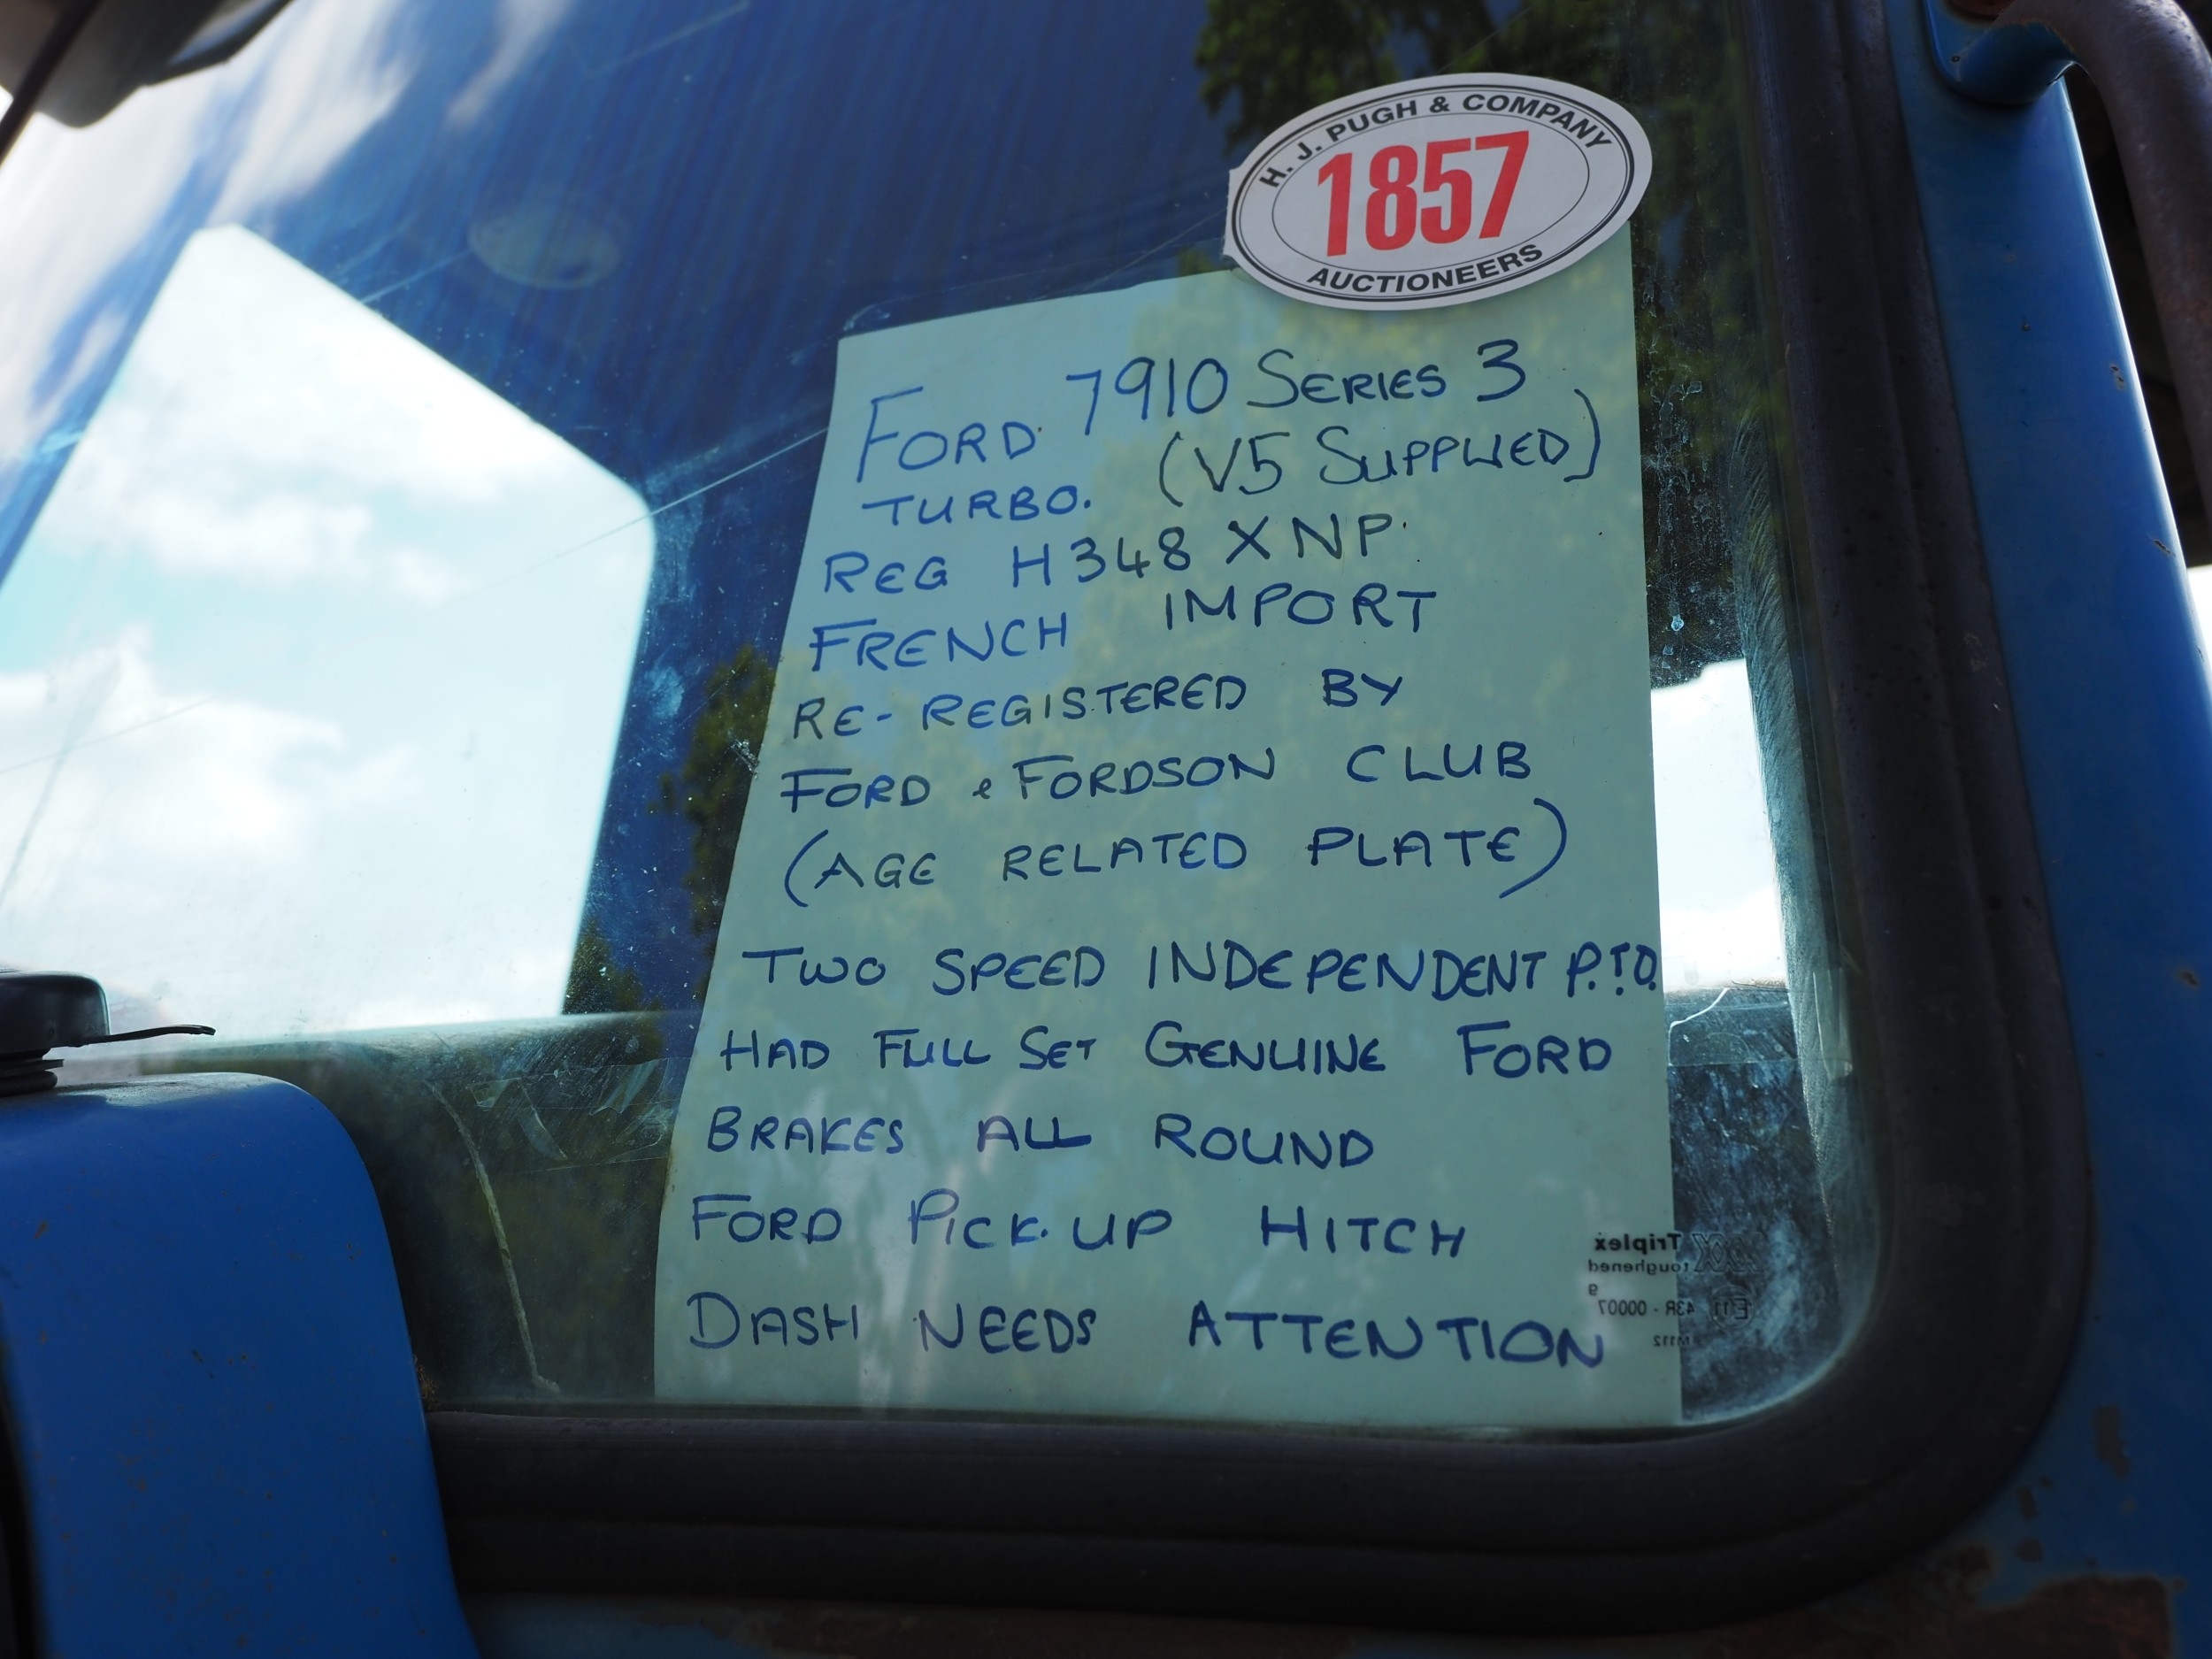 H. J. PUGH & COMPANY
1857
AUCTIONEERS
FORD 7910 SERIES 3
TURBO. (V5 SUPPLIED)
REG H348 XNP.
FRENCH IMPORT
RE-REGISTERED BY
FORD & FORDSON CLUB
(AGE RELATED PLATE)
TWO SPEED INDEPENDENT P.T.O.
HAD FULL SET GENUINE FORD
BRAKES ALL ROUND
FORD PICK-UP HITCH
DASH NEEDS ATTENTION
XXX Triplex
toughened
9
E11 43R - 00007
M112